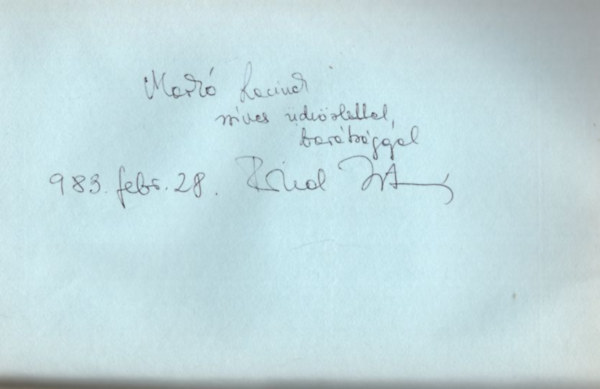 Markó Lacinak
szíves üdvözlettel,
barátsággal
983. febr. 28.